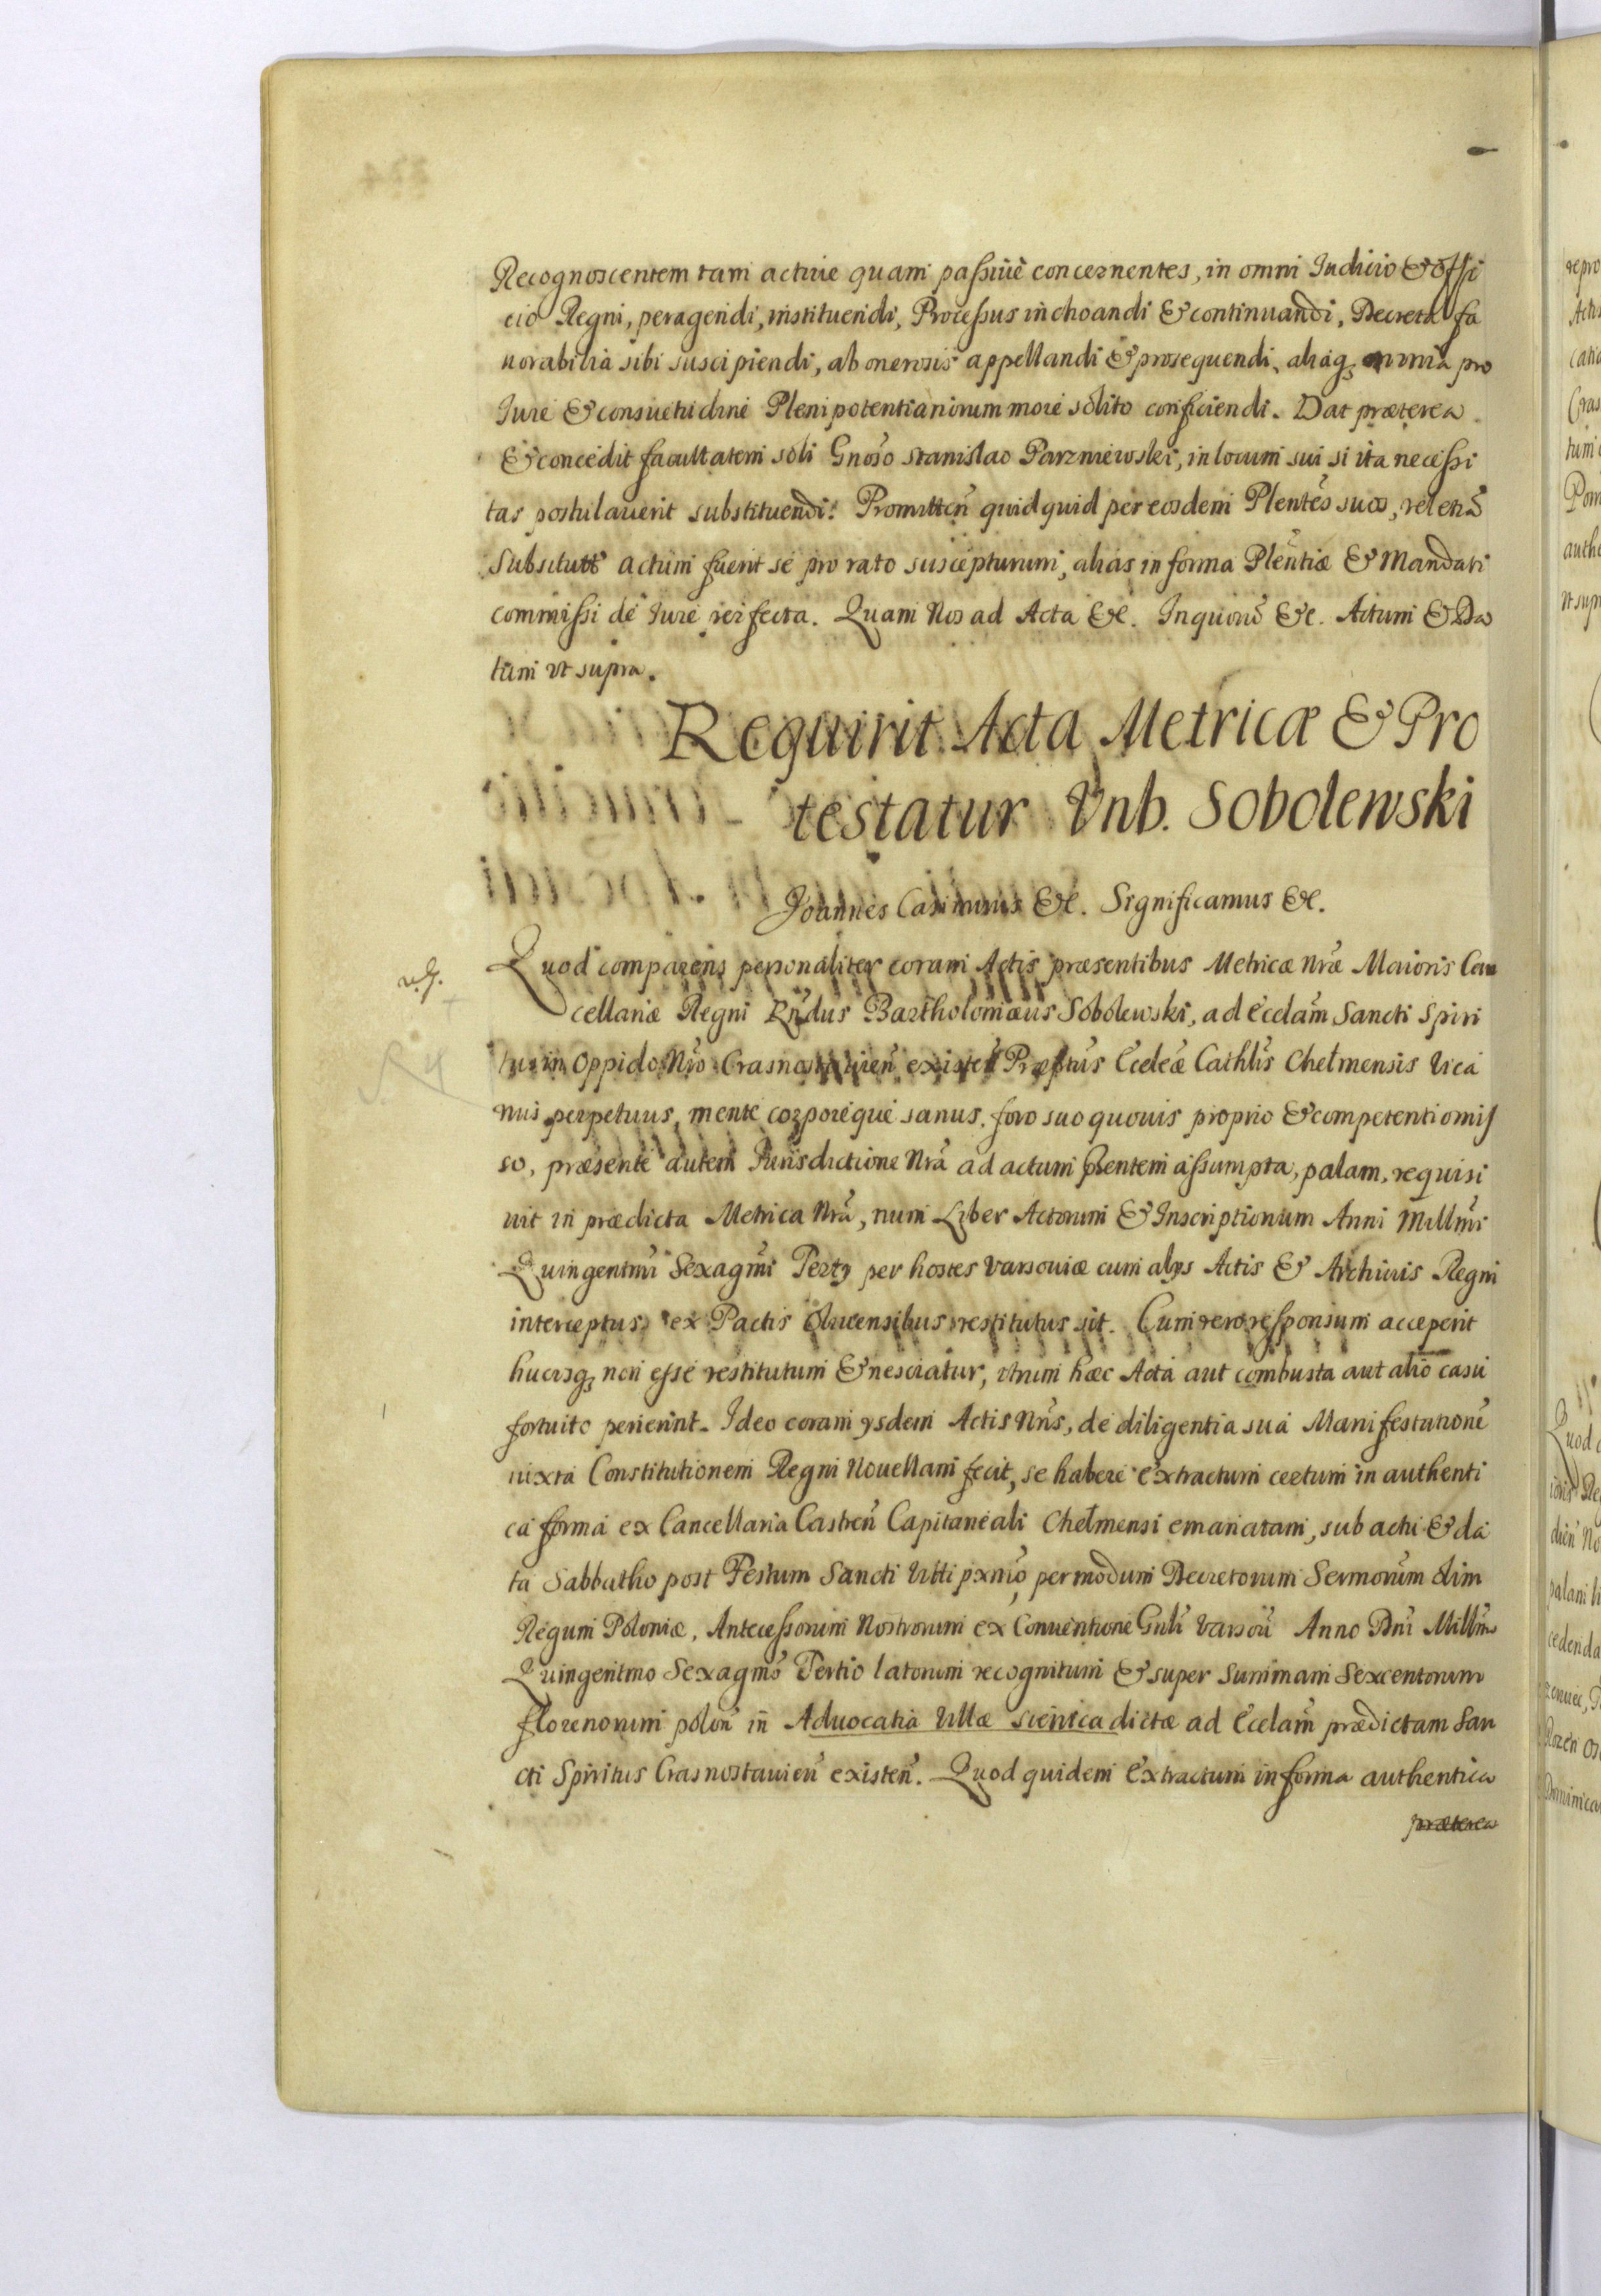 Recognoscentem tam active quam passivè concernentes, in omni Iudicio & Offi
cio Regni, peragendi, instituendi, Processus inchoandi & continuandi, Decreta fa
uorabilia sibi suscipiendi, ab onerosis appellandi & prosequendi, aliaq omnia pro
Iure & consuetudine Plenipotentiariorum more solito conficiendi. Dat præterea
& concedit facultatem soli Gnoso Stanislao Parzniewski, in locum sui si ita necessi
tas postulauerit substituendi. Promitten quidquid per eosdem Plentes suos, vel
Substitutt actum fuerit se pro rato suscepturum, alias in forma Plentiæ & Mandati
commissi de Iure perfecta. Quam Nos ad Acta &c. In quorum &c. Actum & Da
tum vt supra.
Requirit Acta Metricæ & Pro
testatur Vnb. Sobolewski
Joannes Casimirus &c. Significamus &c.
Quod comparens personaliter coram Actis præsentibus Metricæ Nræ Maioris Can
cellariæ Regni Rndus Bartholomæus Sobolewski, ad Ecclam Sancti Spiri
tus in Oppido Nro Crasnostauien existen Præptus Eccleæ Cathlis Chelmensis Vica
rius perpetuus, mente corporeque sanus, foro suo quouis proprio & competenti omis
so, præsente autem Iurisdictione Nra ad actum pntem assumpta, palam, requisi
uit in prædicta Metrica Nra, num Liber Actorum & Inscriptionum Anni Millmi
Quingentmi Sexagmi Tertÿ per hostes Varsouiæ cum alÿs Actis & Archiuis Regni
interceptus, ex Pactis Oliuensibus restitutus sit. Cum vero responsum acceperit
hucusq non esse restitutum & nesciatur, vtrum hæc Acta aut combusta aut alio casu
fortuito perierint. Ideo coram ÿsdem Actis Nris, de diligentia sua Manifestatione
iuxta Constitutionem Regni Nouellam fecit, se habere extractum certum in authenti
ca forma ex Cancellaria Castren Capitaneali Chelmensi emanatam, sub actu & da
ta Sabbatho post Festum Sancti Viti pxmo, per modum Decretorum Sermorum olim
Regum Poloniæ, Antecessorum Nostrorum ex Conuentione Gnli Varsou Anno Dni Millmo
Quingentmo Sexagmo Tertio latorum recognitum & super summam Sexcentorum
florenorum polon in Aduocatia Villæ Siennica dictæ ad Ecclam prædictam San
cti Spiritus Crasnostauien existen. Quod quidem Extractum in forma authentica
præterea